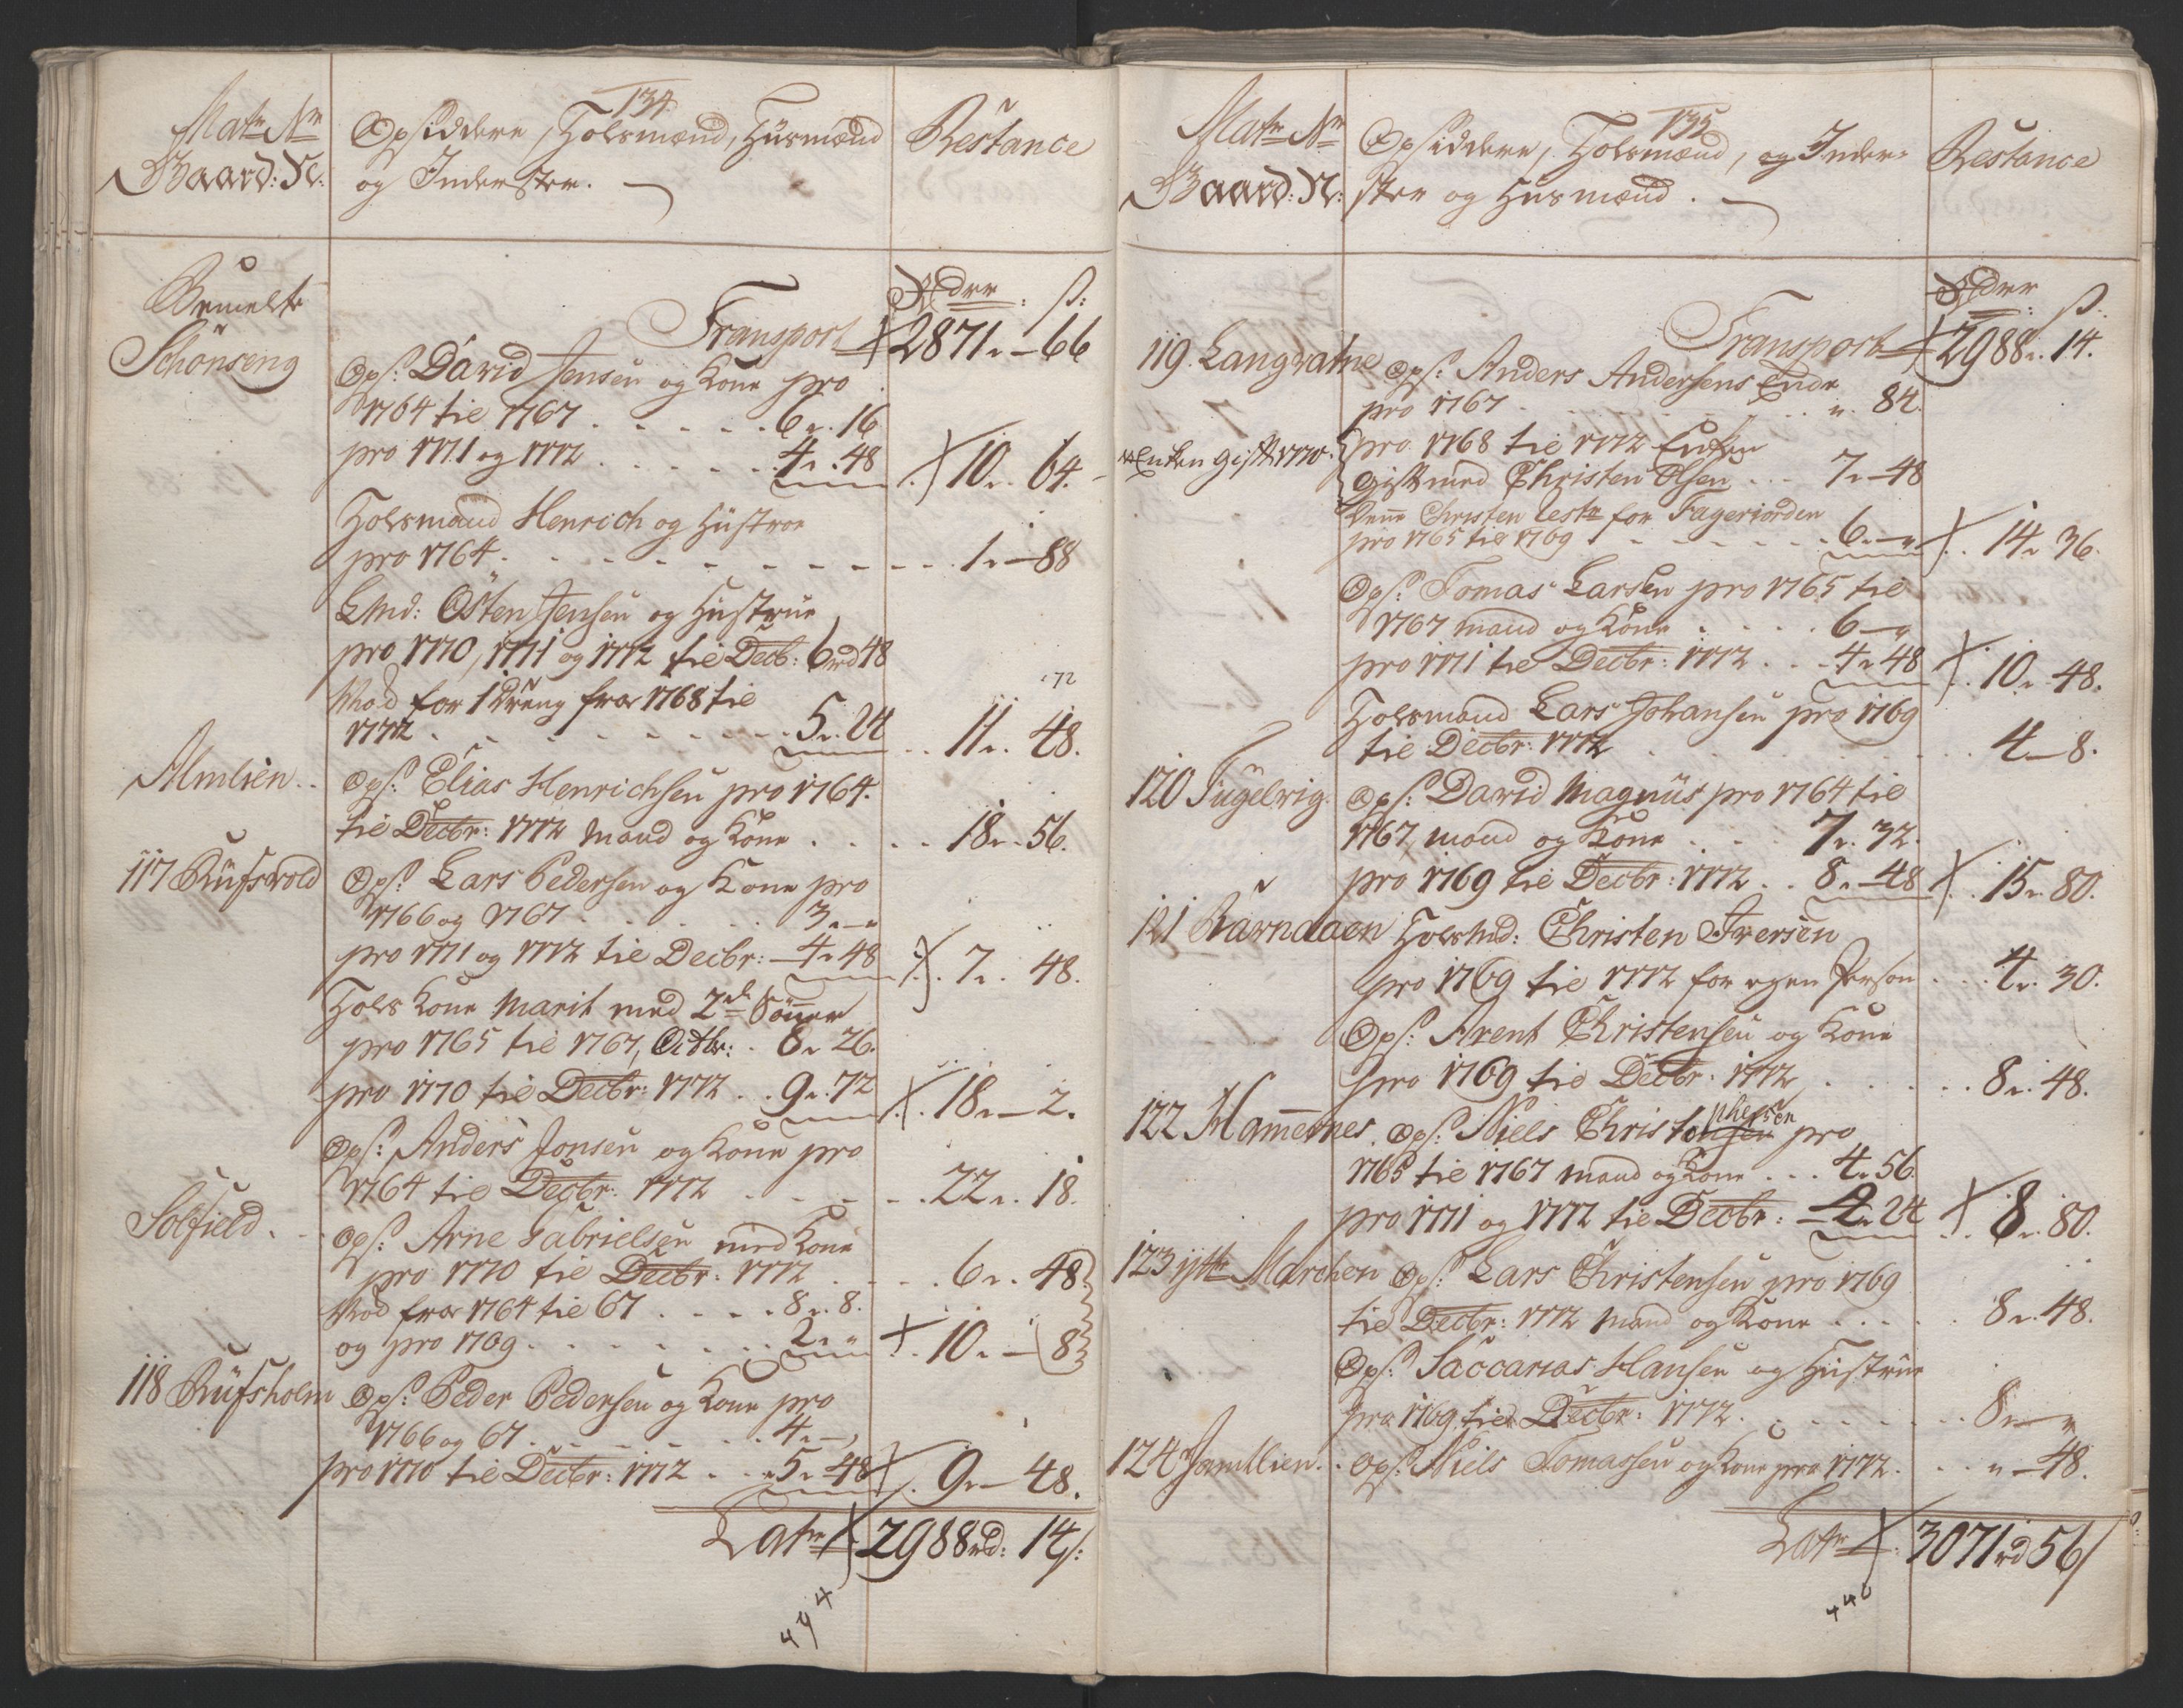 134.
Matr Nr
Gaard: N:
Opsiddere, Holsmænd, Hüsmænd
og Inderster.
Restance
Bemelte
Schönseng
Rdrr : ß:
Transport 2871 „ – 66
Ops: David Jensen og Kone pro
1764 til 1767 . . . . . 6 „ 16
pro 1771 og 1772 . . . . . 4 „ 48 10 „ 64.
Holsmand Henrich og Hüstroe
pro 1764 . . . . . . . . . 1 „ – 88
Lmd: Östen Jensen og Hustrue
pro 1770, 1771 og 1772 til Decb: 6 rd 48
72
Mod for 1 Dreng fra 1768 til
1772 . . . . . . . . . 5 „ 24 . . 11 „ 48.
Almlien . . Ops: Elias Henrichsen pro 1764.
til Decbr: 1772 Mand og Kone . . . . 18 „ – 56.
117 Rüfsvold Ops: Lars Pedersen og Kone pro
1766 og 1767 . . . . . . . 3 „ – „
pro 1771 og 1772 til Decbr: – 4 „ 48 . 7 „ 48.
Hols Kone Marit med 2de Sönner
pro 1765 til 1767, Octbr: . 8 „ 26.
pro 1770 til Decbr: 1772 . . 9 „ 72 . 18 „ – 2.
Ops: Anders Jonsen og Kone pro
1764 til Decbr: 1772 . . . . . . 22 „ 18.
Solfield. Ops: Arne Gabrielsen med Kone
pro 1770 til Decbr: 1772 . . . . . 6 „ 48
Mod fra 1764 til 67 . . . . 8 „ 8.
og pro 1769 . . . . . . . . 2 „ „ . 10 „ – 8
118 Rüfsholm Ops: Peder Pedersen og Kone pro
1766 og 67 . . . . . . . 4 „ – „
pro 1770 til Decbr: 1772 . . . 5 „ 48 . 9 „ – 48.
Latr 2988 rd: 14 ß:
494
135
Matr Nr
Gaard: N:
Opsiddere, Holsmænd, og Inder-
ster og Husmænd .
Restance
Rdrr ß:
Transport 2988 „ 14.
119. Langvatne Ops: Anders Andersens Enke
pro 1767 . . . . . . . . . „ 84.
Enken gift 1770. pro 1768 til 1772 Enken
gift med Christen Olsen . . . 7 „ – 48
Denne Christen Restr for Fageriorden
pro 1765 til 1769 . . . . . . . 6 „ – „ . 14 „ 36.
Ops: Tomas Larsen pro 1765 til
1767 Mand og Kone . . . . . 6 – „
pro 1771 til Decbr: 1772 . . . 4 „ 48 . 10 „ 48.
Holsmand Lars Johansen pro 1769
til Decbr: 1772 . . . . . . . 4 – 8.
120 Fugelvig. Ops: David Magnüs pro 1764 til
1767 Mand og Kone . . . . 7 „ 32.
pro 1769 til Decbr: 1772 . . 8 „ – 48 . 15 „ 80.
121 Rävndaen Holsmd: Christen Iversen
pro 1769 til 1772 for egen Person . . . 4 „ 30.
Ops: Arent Christensen og Kone
pro 1769 til Decbr: 1772 . . . . . 8 „ 48.
122 Hamernes. Ops: Niels Christophersen pro
1765 til 1767 Mand og Kone . . . 4 „ 56.
pro 1771 og 1772 til Decbr: – 4 „ 24 . 8 „ 80.
123 ytr Marchen Ops: Lars Christensen pro 1769
til Decbr: 1772 Mand og Kone . . . . . 8 „ 48.
Ops: Saccarias Hansen og Hustrue
pro 1769 til Decbr: 1772 . . . . . . . . 8 „ – „
124 Jamtlien. . Ops: Niels Tomassen og Kone pro 1772 . . . „ – 48.
Latr 3071 rd 56 ß
446